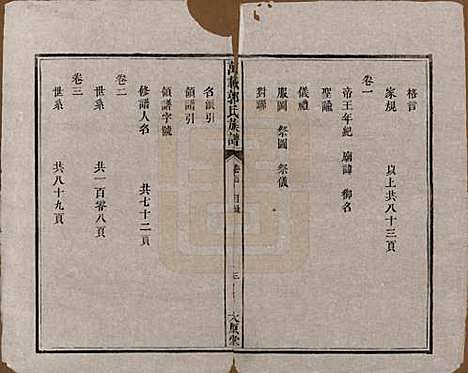 格言
家規　以上共八十三頁
卷一
帝王年紀　廟諱　御名
聖諭
儀禮
服圖　祭圖　祭儀
對聯
郭氏族譜
卷首　目錄
三
太原堂
名派引
領譜引
領譜字號
修譜人名　共七十二頁
卷二
世系　共一百零八頁
卷三
世系　共八十九頁